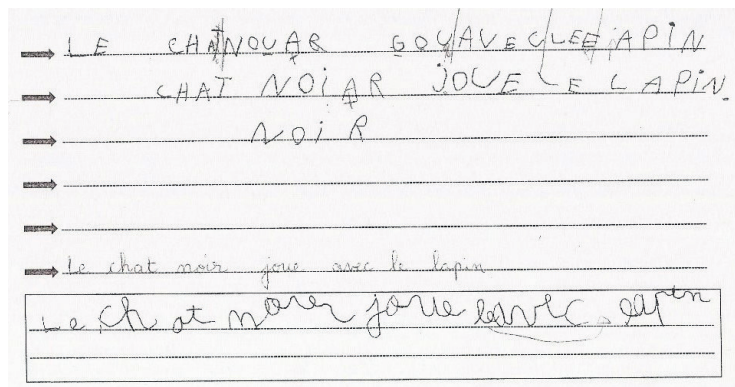 LE CHATNOUAR GOUAVECLEE APIN
CHAT NOiAR JOUE LE LAPIN.
NOiR
Le chat noir joue avec le lapin
Le chat noir joue avec lapin